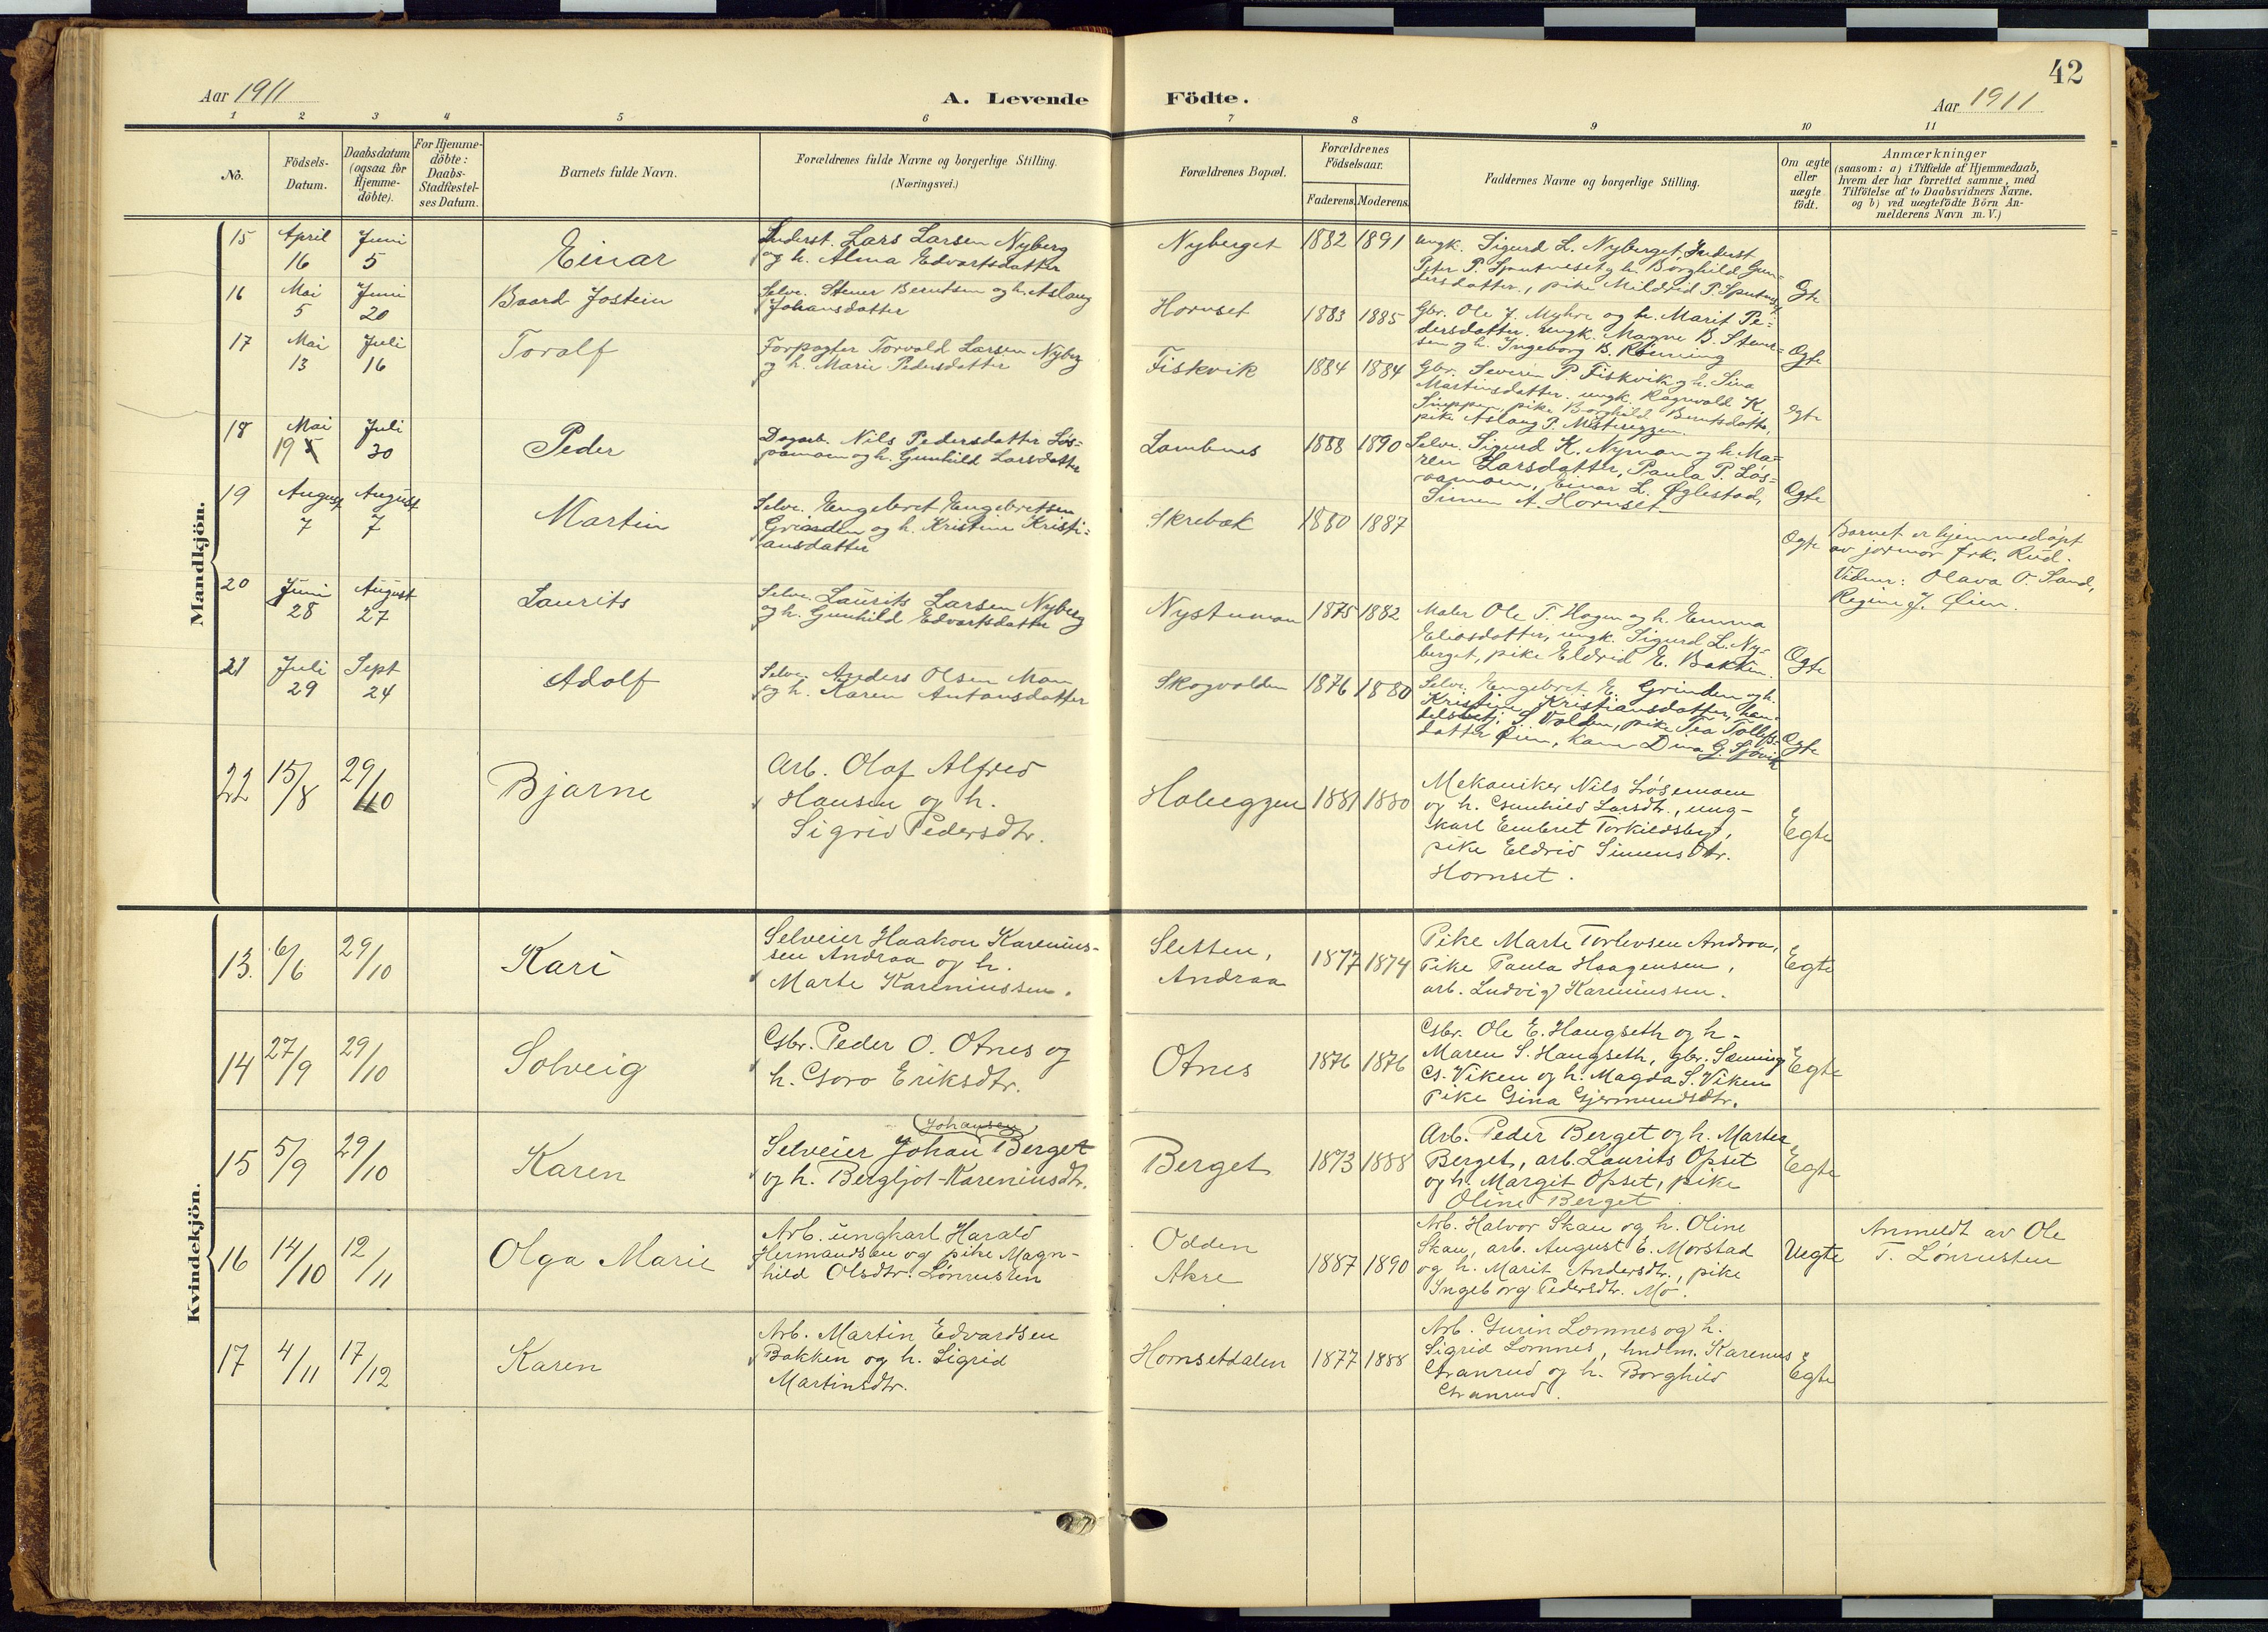 42
Aar 1911
A. Levende Födte.
Aar 1911
1 2 3 4 5 6 7 8 9 10 11
No.
Födsels-
Datum.
Daabsdatum
(ogsaa for
Hjemme-
döbte).
For Hjemme-
döbte:
Daabs-
Stadfæstel-
ses Datum.
Barnets fulde Navn.
Forældrenes fulde Navne og borgerlige Stilling.
(Næringsvei.)
Forældrenes Bopæl.
Forældrenes
Födselsaar.
Faderens. Moderens.
Faddernes Navne og borgerlige Stilling.
Om ægte
eller
uægte
födt.
Anmærkninger
(saasom: a) i Tilfælde af Hjemmedaab,
hvem der har forrettet samme, med
Tilföielse af to Daabsvidners Navne,
og b) ved uægtefödte Börn An-
melderens Navn m. V.)
Mandkjön.
15
April
16
Juni
5
Einar
Inderst. Lars Larsen Nyberg
og h. Alma Edvartsdatter
Nyberget
1882 1891
ungk. Sigurd L. Nyberget, Inderst
Peter P. og h. Borghild Gun=
dersdatter, pike Mildrid P.
Egte
16
Mai
5
Juni
20
Baard Jostein
Selve. Stener Berntsen og h. Aslaug
Johansdatter
Hornset
1883 1885
Gbr. Ole J. Myhre og h. Marit Pe=
dersdatter. ungk. Magne B. Stener=
sen og h. Ingeborg B. Rönning
Egte
17
Mai
13
Juli
16
Toralf
Forpagter Torvald Larsen Nyberg
og h. Marie Pedersdatter
Fiskvik
1884 1884
Gbr. Severin P. Fiskvik og h. Sina
Martinsdatter. ungk. Ragnvald K.
pike Borghild Berntsdatter,
pike Aslaug P. Misteregzen
Egte
18
Mai
19
Juli
30
Peder
Dagarb. Nils Pedersdatter Løs=
øamoen og h. Gunhild Larsdatter
Lombnes
1888 1890
Selve. Sigurd K. Nyman og h. Ma=
ren Larsdatter, Paula P. Løs=
øamoen, Einar L. Øglestad,
Simen A. Hornset
Egte
19
August
7
August
7
Martin
Selve. Engebret Engebretsen
Grinden og h. Kristine Kristi=
ansdatter
Skrebæk
1880 1887
Egte
Barnet er hjemmedøpt
av jormor frk. Rud.
Vidner: Olava O. Sand,
Regine J. Øien.
20
Juni
28
August
27
Laurits
Selve. Laurits Larsen Nyberg
og h. Gunhild Edvartsdatter
Nystumoen
1875 1882
Maler Ole T. Hagen og h. Emma
Eliasdatter, ungk. Sigurd L. Ny-
berget, pike Eldrid E. Bakken.
Egte
21
Juli
29
Sept
24
Adolf
Selve. Anders Olsen Moen
og h. Karen Antonsdatter
Skogvolden
1876 1880
Selve. Engebret E. Grinden og h.
Kristine Kristiansdatter, han-
delsbetj. S. Volden, pike Tea Tollefs=
datter Øien, Dina G. Sjøvik
Egte
22
15/8
29/10
Bjarne
Arb. Olaf Alfred
Hansen og h.
Sigrid Pedersdtr.
Holseggen
1881 1880
Mekaniker Nils Løsemoen
og h. Gunhild Larsdtr., ung-
karl Embret Torkildsberg,
pike Eldrid Simensdtr.
Hornset.
Egte
Kvindekjön.
13.
6/6
29/10
Kari
Selveier Haakon Karenius-
sen Andraa og h.
Marte Kareniussen.
Sletten,
Andraa
1877 1874
Pike Marte Torlevsen Andraa,
Pike Paula Haagensen,
arb. Ludvig Kareniussen.
Egte
14
27/9
29/10
Solveig
Gbr. Peder O. Otnes og
h. Goro Eriksdtr.
Otnes
1876 1876
Gbr. Ole E. Haugseth og h.
Maren S. Haugseth, gbr. Sæming
G. Viken og h. Magda S. Viken
Pike Gina Gjermundsdtr.
Egte
15
5/9
29/10
Karen
(Johansen)
Selveier Johan Berget
og h. Bergljot Kareniusdtr.
Berget
1873 1888
Arb. Peder Berget og h. Marte
Berget, arb. Laurits Opset
og h. Margit Opset, pike
Oline Berget
Egte
16
14/10
12/11
Olga Marie
Arb. ungkarl Harald
Hermandsen og pike Magn-
hild Olsdtr. Lønrusten
Odden
Akre
1887 1890
Arb. Halvor Skau og h. Oline
Skau, arb. August E. Morstad
og h. Marit Andersdtr., pike
Ingeborg Pedersdtr. Mo.
Uegte
Anmeldt av Ole
T. Lønrusten
17
4/11
17/12
Karen
Arb. Martin Edvardsen
Bakken og h. Sigrid
Martinsdtr.
Hornsetdalen
1877 1888
Arb. Gurin Lomnes og h.
Sigrid Lomnes, hndlm. Karenus
Granrud og h. Borghild
Granrud.
Egte